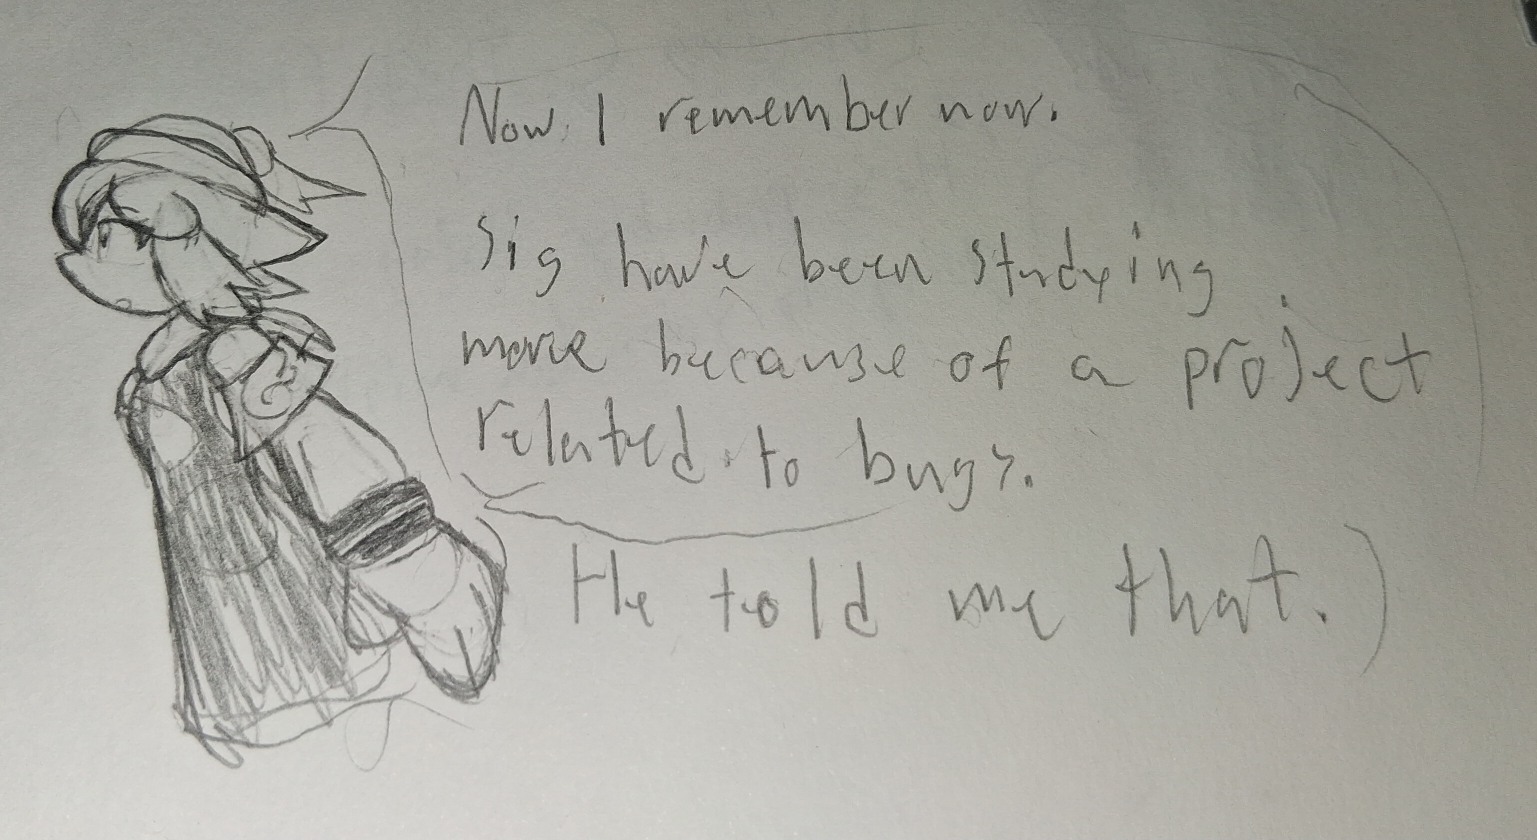 Now I remember now.
Sig have been studying
more because of a project
related to bugs.
He told me that.)